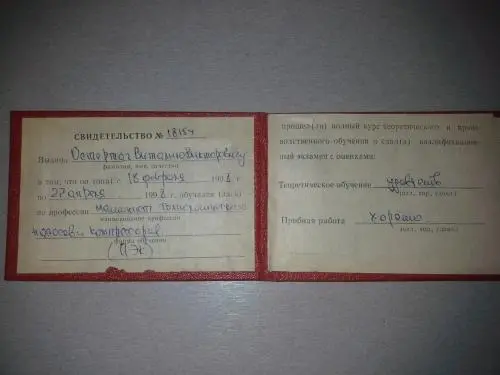 СВИДЕТЕЛЬСТВО № 18154
Выдано Остертаг Виталию Викторовичу
фамилия, имя, отчество
в том, что он (она) с 18 февраля 1998 г.
по 27 апреля 1998 г. обучался (лась)
по профессии машинист
наименование профессии
насосов и компрессоров
форма обучения
прошел (-ла) полный курс теоретического и произ-
водственного обучения и сдал (а) квалификацион-
ный экзамен с оценками:
Теоретическое обучение удовлетв
(отл, хор, удовл)
Пробная работа хорошо
(отл, хор, удовл)